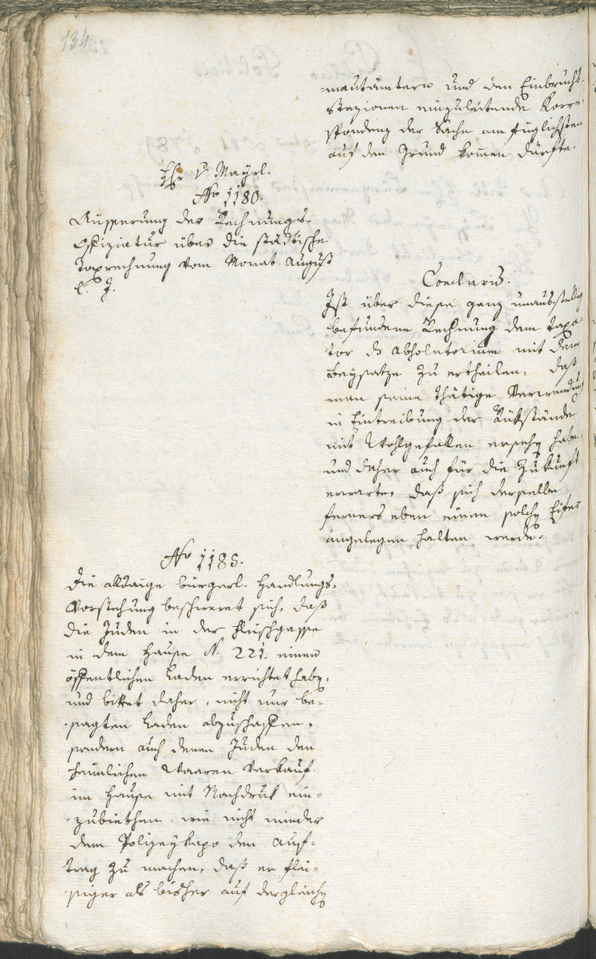 134
mautämtern und den Einbruchs-
stazionen einzuleitende Korre
spondenz der Sache am füglichsten
auf den Grund kommen dürfte.
Hr v. Mayrl.
Nro 1180.
Äusserung der Rechnungs-
Offiziatur über die städtische
Taxrechnung vom Monat August
l. J.
Conclusum.
Ist über diese ganz unausstellig
befundene Rechnung dem Taxa
tor das Absolutorium mit dem
Beysatze zu ertheilen, daß
man seine thätige Verwendung
in Eintreibung der Rükstände
mit Wohlgefallen ersehen habe,
und daher auch für die Zukunft
erwarte, daß sich derselbe
ferners eben einen solchen Eifer
angelegen halten werde.
Nro 1185.
Die alldaige bürgerl. Handlungs-
Vorstehung beschweret sich, daß
die Juden in der Fleischgasse
in dem Hause N. 221. einen
öffentlichen Laden errichtet haben,
und bittet daher, nicht nur be-
sagten Laden abzuschaffen,
sondern auch denen Juden den
heimlichen Waaren Verkauf
im Hause mit Nachdruk ein-
zubiethen, wie nicht minder
dem Polizeykapo den Auf-
trag zu machen, daß er flei-
ssiger als bisher auf dergleichen